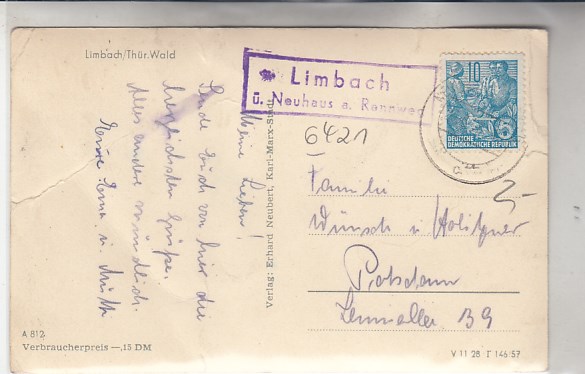 Limbach/Thür. Wald
Limbach
ü. Neuhaus a. Rennweg
10
DEUTSCHE
DEMOKRATISCHE REPUBLIK
6421
Meine Lieben!
Sende Euch von hier die
herzlichsten Grüße.
Alles andere mündlich.
Eure Erna u. Mutti
Verlag: Erhard Neubert, Karl-Marx-Stadt
Familie
Wünsch u.
Potsdam
39
A 812
Verbraucherpreis —,15 DM
V 11 28 T 146/57